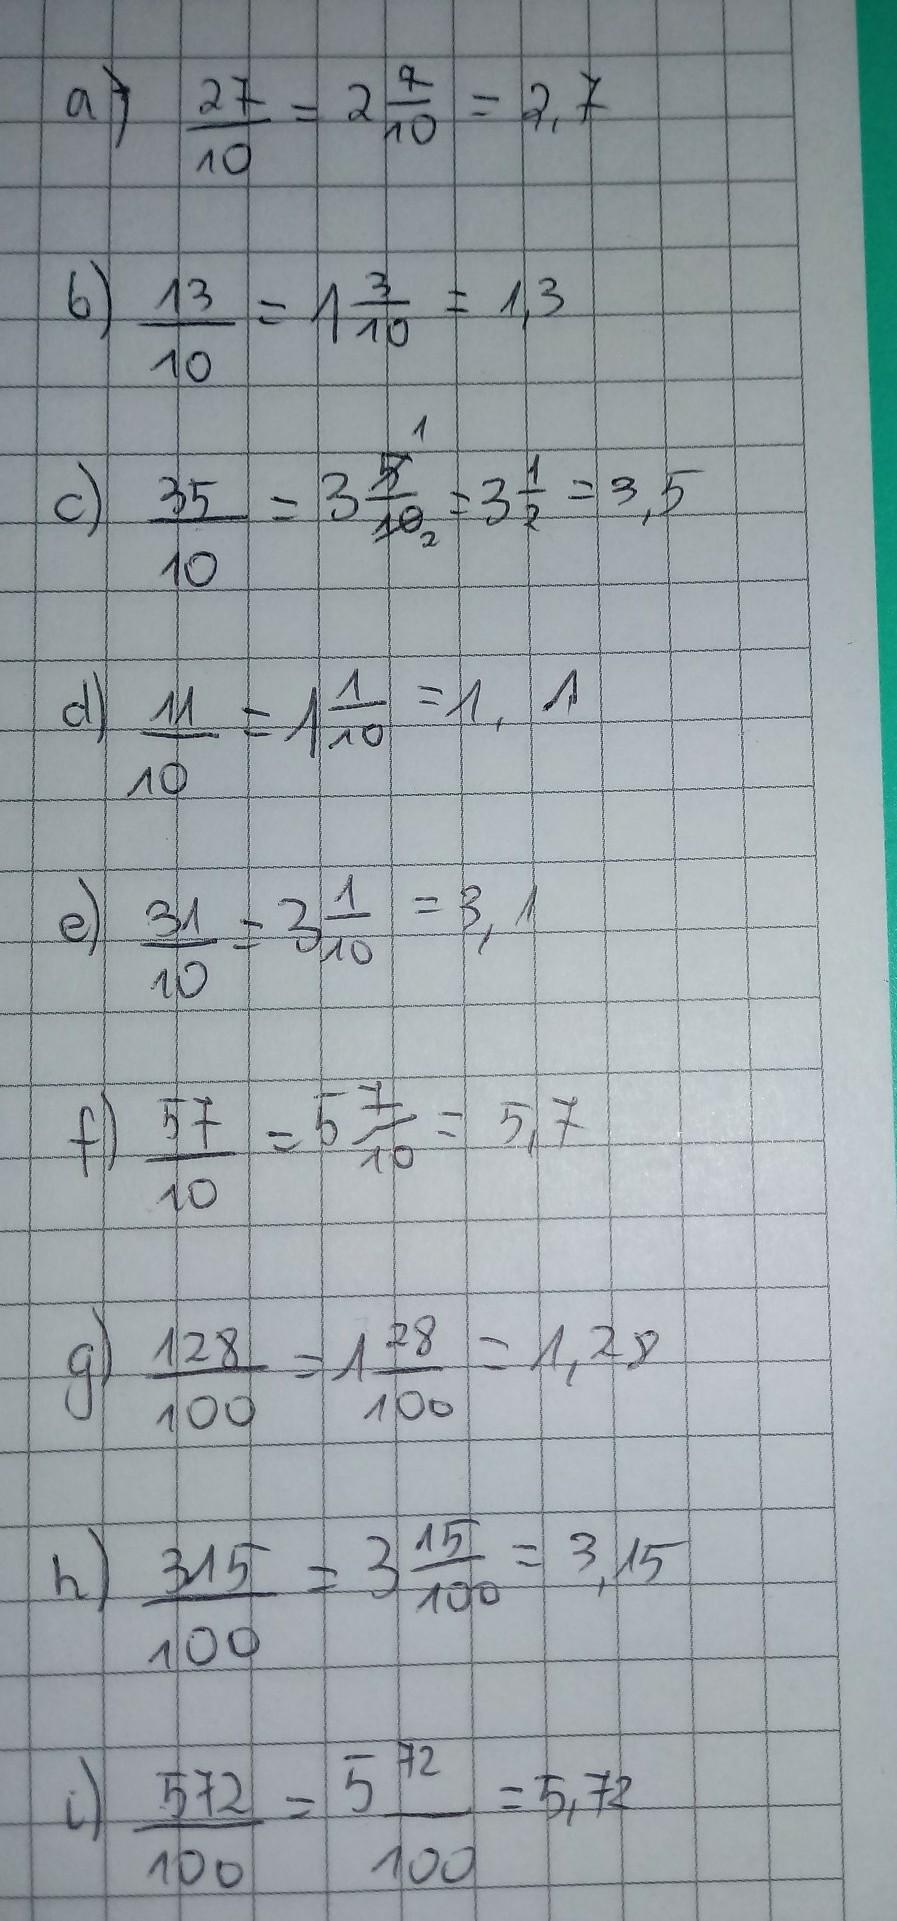 a) 27/10 = 2 7/10 = 2,7
b) 13/10 = 1 3/10 = 1,3
c) 35/10 = 3 5/10 1 2 = 3 1/2 = 3,5
d) 11/10 = 1 1/10 = 1, 1
e) 31/10 = 3 1/10 = 3,1
f) 57/10 = 5 7/10 = 5,7
g) 128/100 = 1 28/100 = 1,28
h) 315/100 = 3 15/100 = 3,15
i) 572/100 = 5 72/100 = 5,72